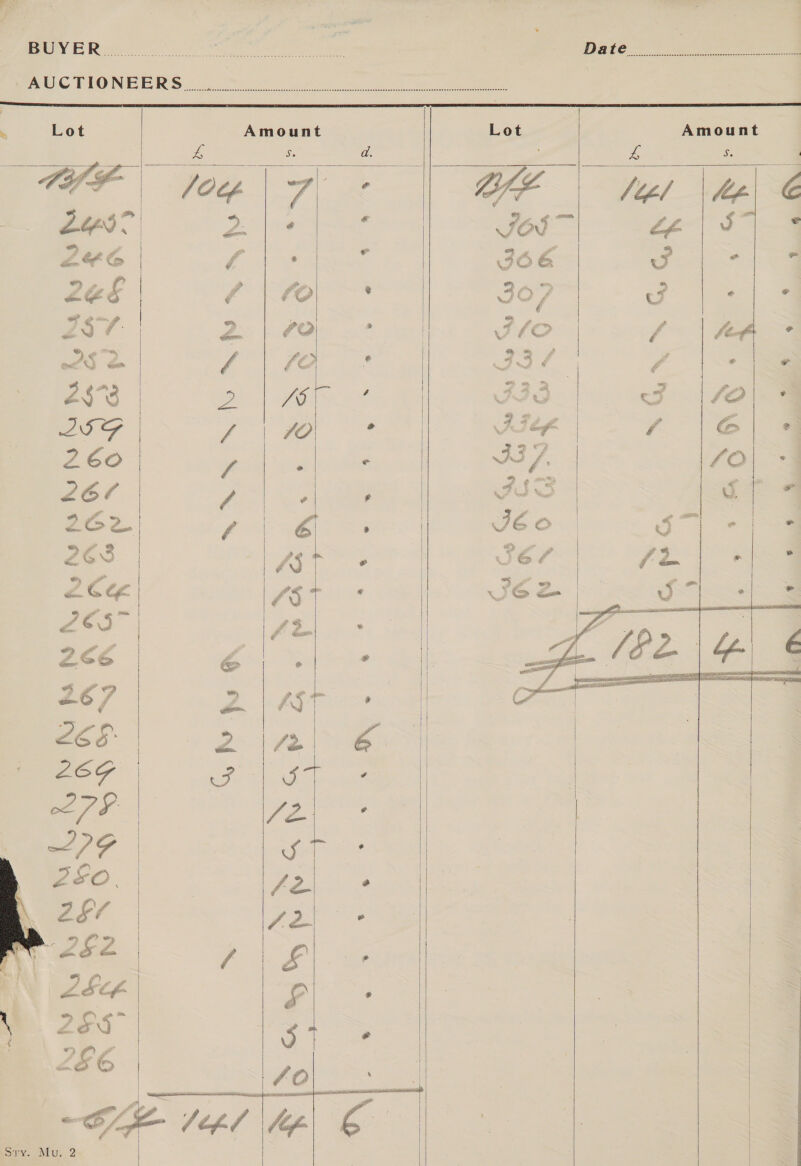 BUYER Date
AUCTIONEERS
Lot Amount Lot Amount
£ s. d. £ s.
B/F 104 7 · B/F 141 14 6
245 2 · · 305 4 5 ·
246 1 · · 306 3 · ·
248 1 10 · 307 3 · ·
251 2 10 · 310 1 14 ·
252 1 10 · 331 1 · ·
253 2 15 · 333 3 10 ·
259 1 10 · 334 1 6 ·
260 1 · · 337. 10 ·
261 1 · · 353 5 ·
262 1 6 · 360 5 · ·
263 15 · 361 12 · ·
264 15 · 362 5 · ·
265 12 ·
266 6 · · £ 182 4 6
267 2 15 ·
268 2 12 6
269 3 5 ·
278 12 ·
279 5 ·
280. 12 ·
281 12 ·
282 1 8 ·
284 8 ·
285 5 ·
286 10 ·
C/F 141 14 6
Sry. Mu. 2